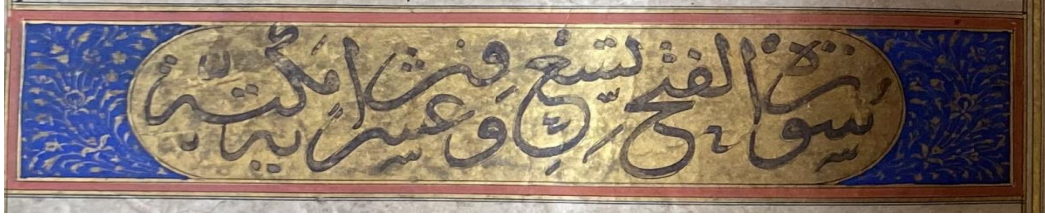 سورة الفتح تسع وعشرون اية مكية